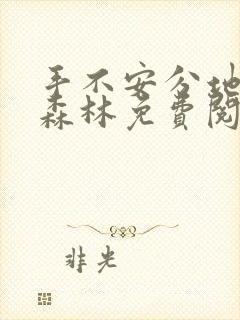 手不安分地
森林免费阅
非光